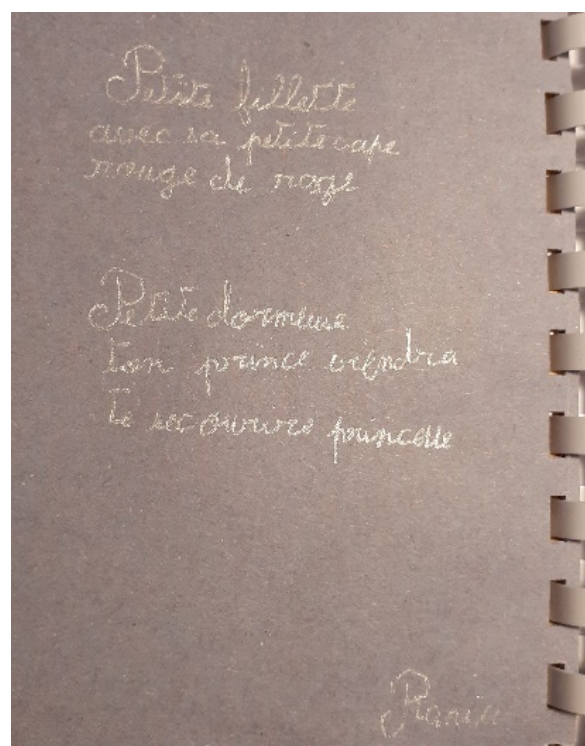 Petite fillette
avec sa petite cape
rouge de rage
Petite dormeuse
ton prince viendra
te secourire princesse
Rania